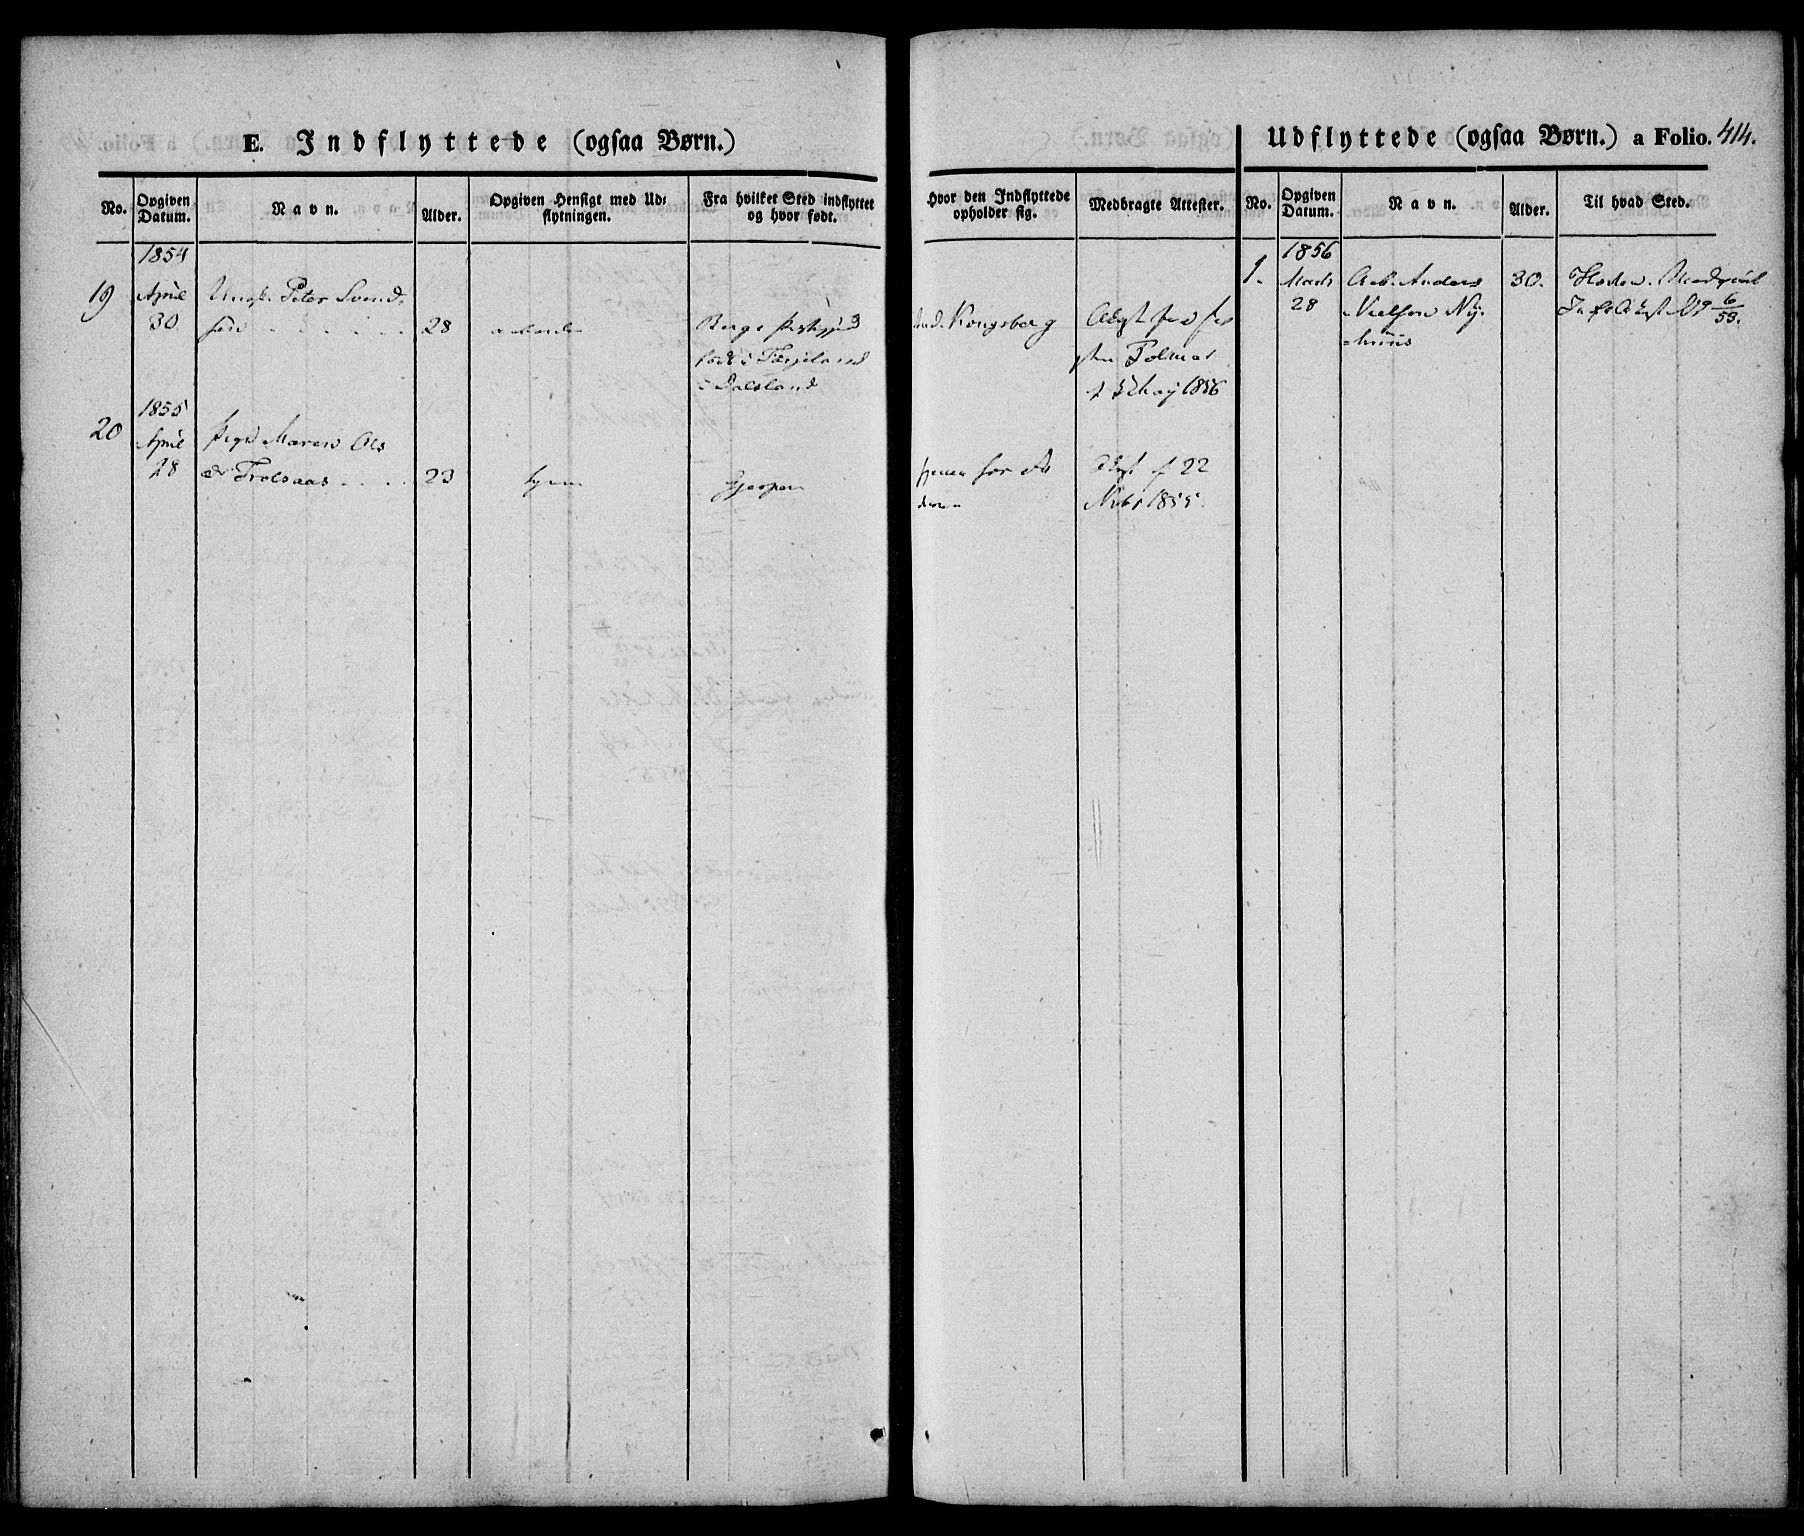 E. Indflyttede (ogsaa Børn.)
Udflyttede (ogsaa Børn.) a Folio. 414.
No.
Opgiven Datum.
Navn.
Alder.
Opgiven Hensigt med Ud-
flytningen.
Fra hvilket Sted indflyttet
og hvor født.
Hvor den Indflyttede
opholder sig.
Medbragte Attester.
No.
Opgiven Datum.
Navn.
Alder.
Til hvad Sted.
1854
19 April Ungk. Peter Svend-
30 sen 28
Berge
født i
i Dalsland
Kongsberg
Attest
1856
1855
20 April Pige Maren Ols
28 dr Trolsaas 23 tjene Gjerpen
tjener for
Attest af 22
Novbr 1855.
1856
1. Marts Arb. Anders 30.
28 Nielsen Ny-
huus
Attest No 9 6/53.